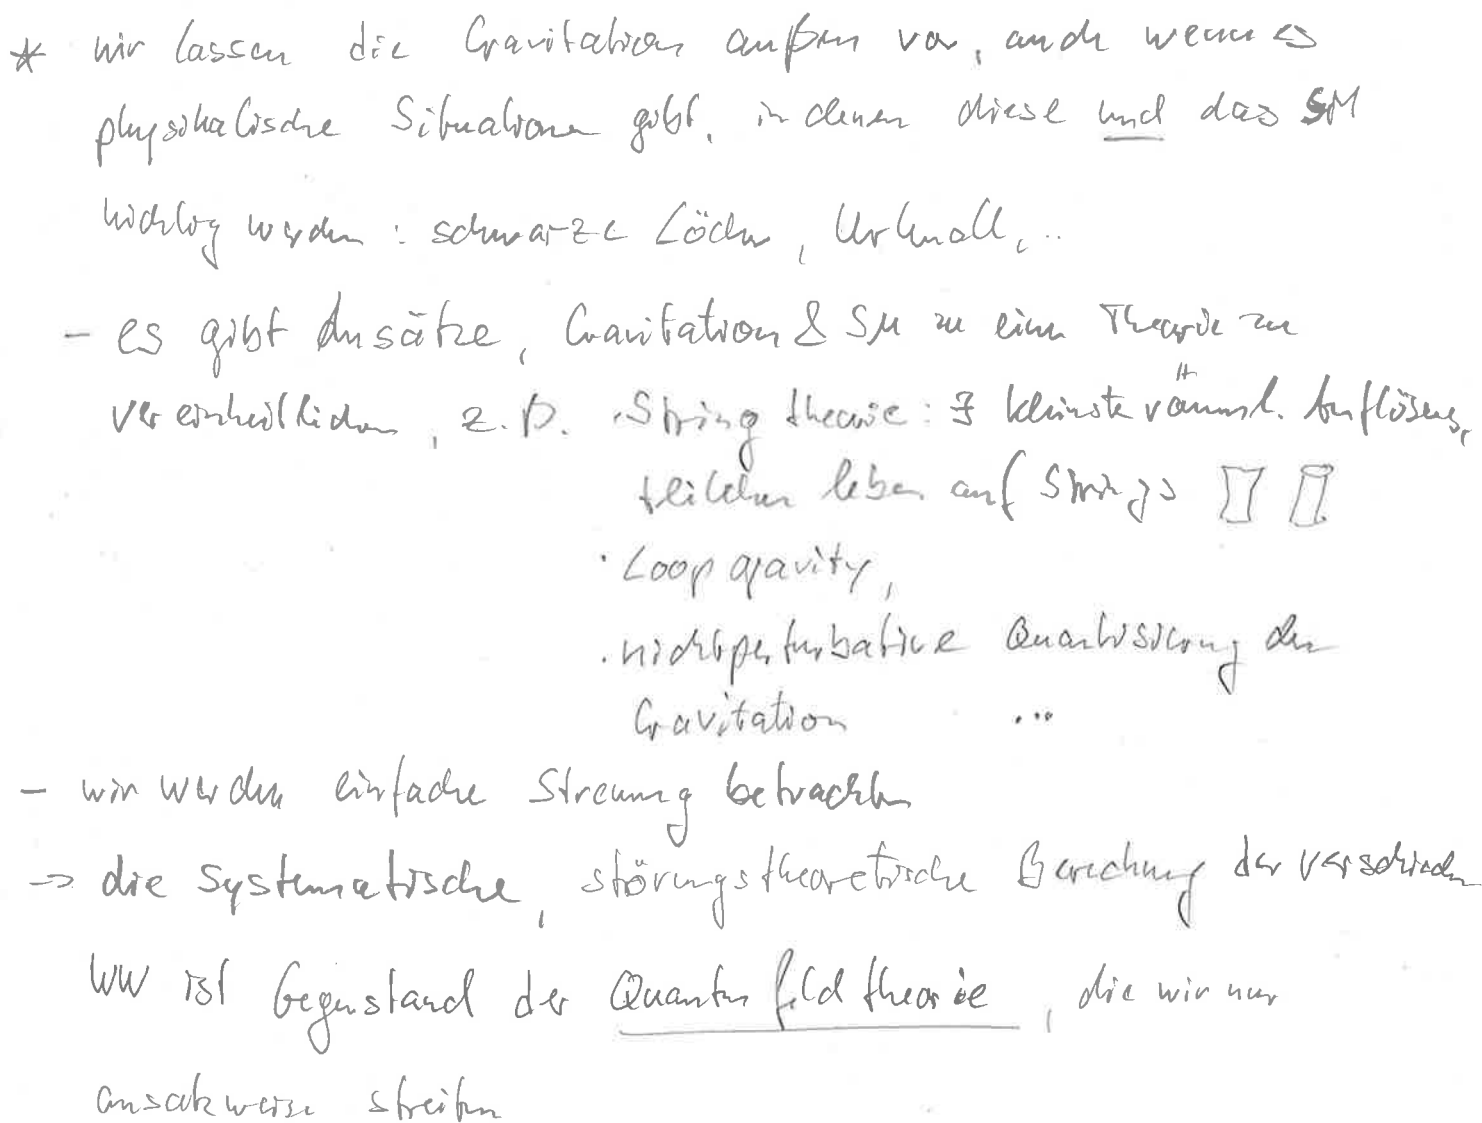 * wir lassen die Gravitation außen vor, auch wenn es
physikalische Situationen gibt, in denen diese und das SM
wichtig werden : schwarze Löcher, Urknall, ..
- es gibt Ansätze, Gravitation & SM zu einer Theorie zu
vereinheitlichen, z.B. · Stringtheorie : ∃ kleinste räuml. Auflösung,
Teilchen leben auf Strings
· Loop gravity,
· nichtperturbative Quantisierung der
Gravitation ...
- wir werden einfache Streuung betrachten
→ die systematische, störungstheoretische Berechnung der verschieden
WW ist Gegenstand der Quantenfeldtheorie, die wir nur
ansatzweise streifen